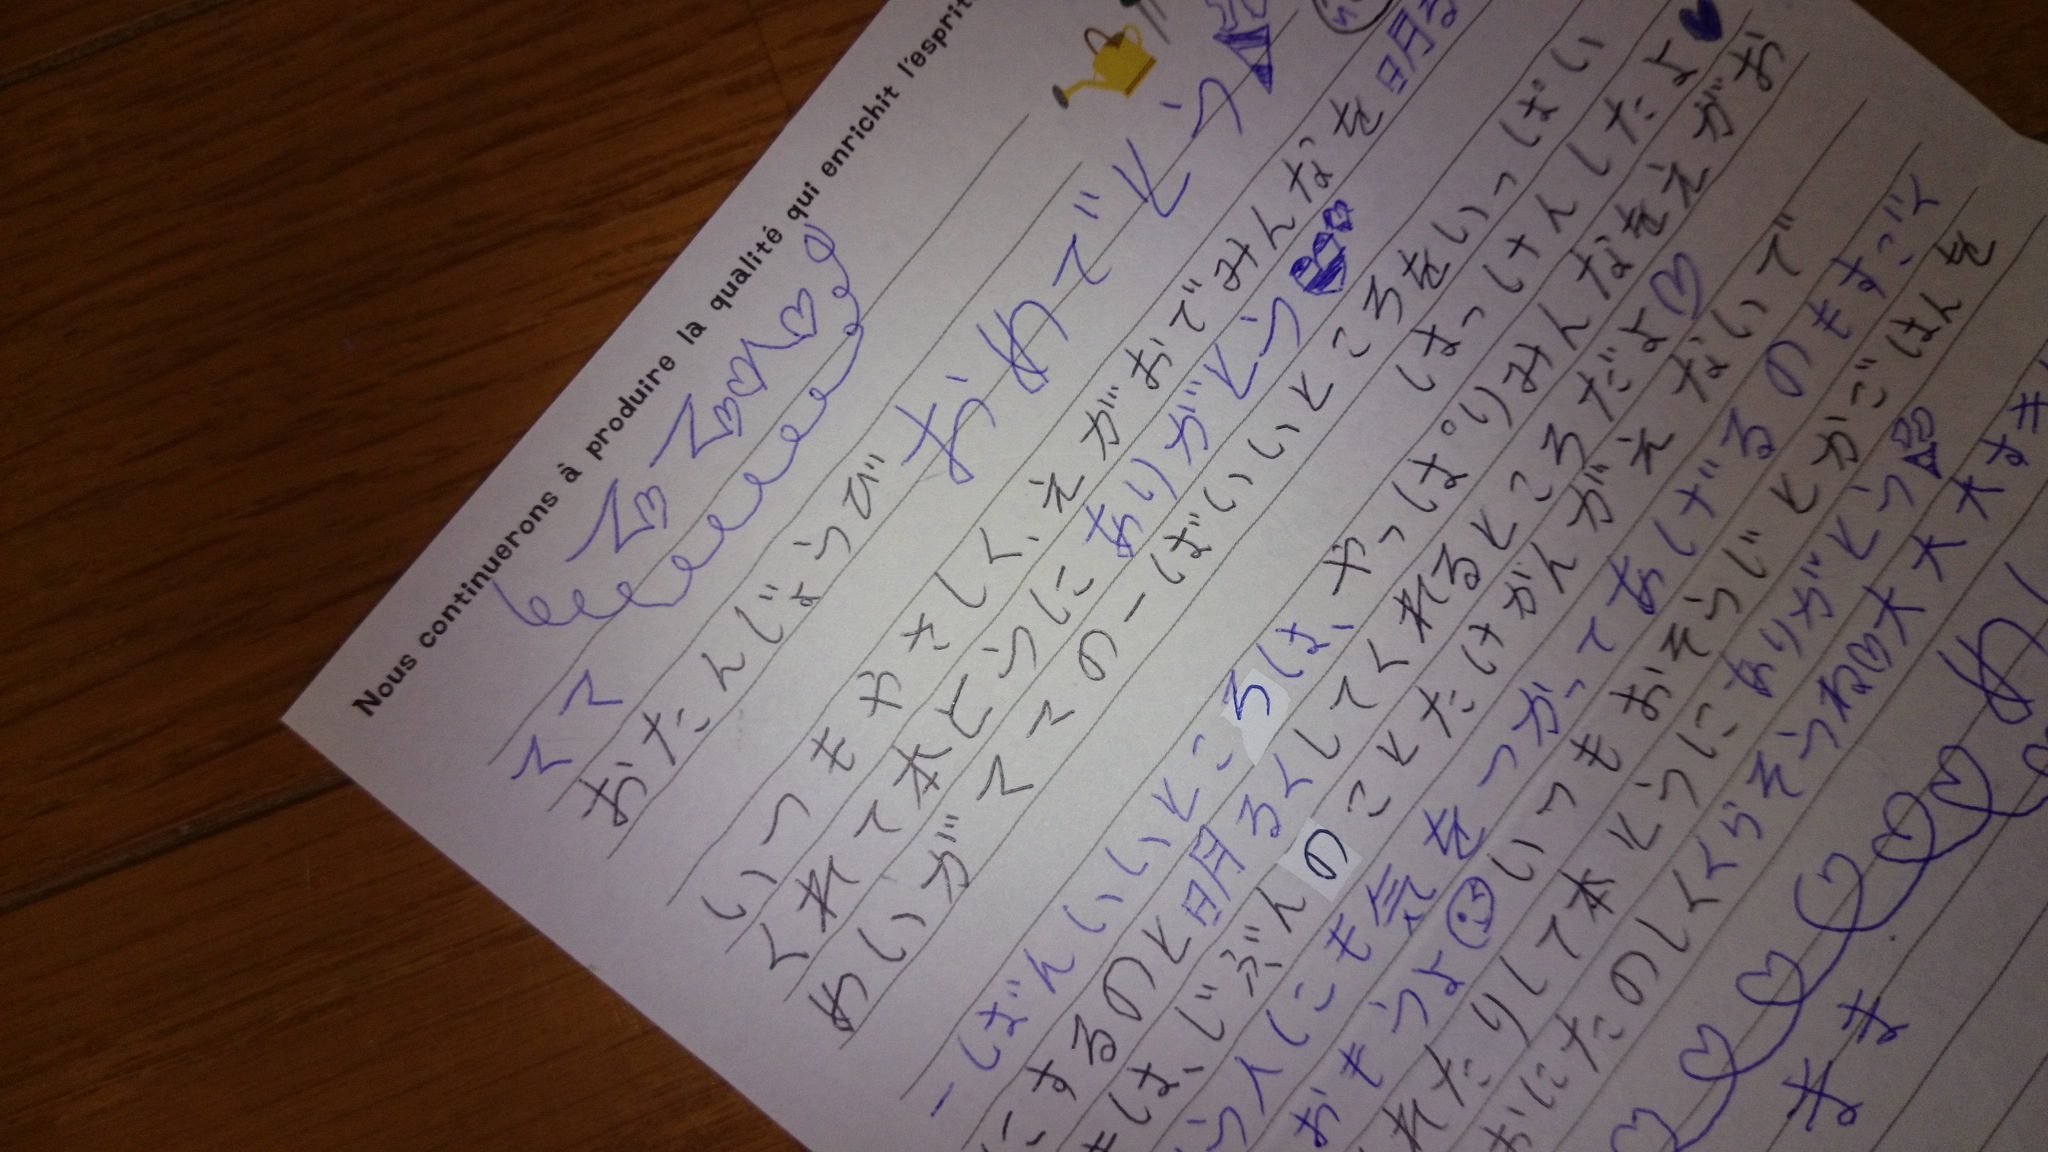 Nous continuerons à produire la qualité qui enrichit l'esprit
ママへ
おたんじょうび おめでとう
いつもやさしく、えがおでみんなを明る
くれて本とうに ありがとう
めいがママの一ばんいいところをいっぱい
はっけんしたよ
一ばんいいところは、やっぱりみんなをえがお
にするのと明るくしてくれるところだよ
きは、じぶんのことだけかんがえないで
う人にも気をつかってあげるのもすごく
おもうよ いつもおそうじとかごはんを
れたりして本とうにありがとう
おにたのしくくらそうね大大大すき
まま